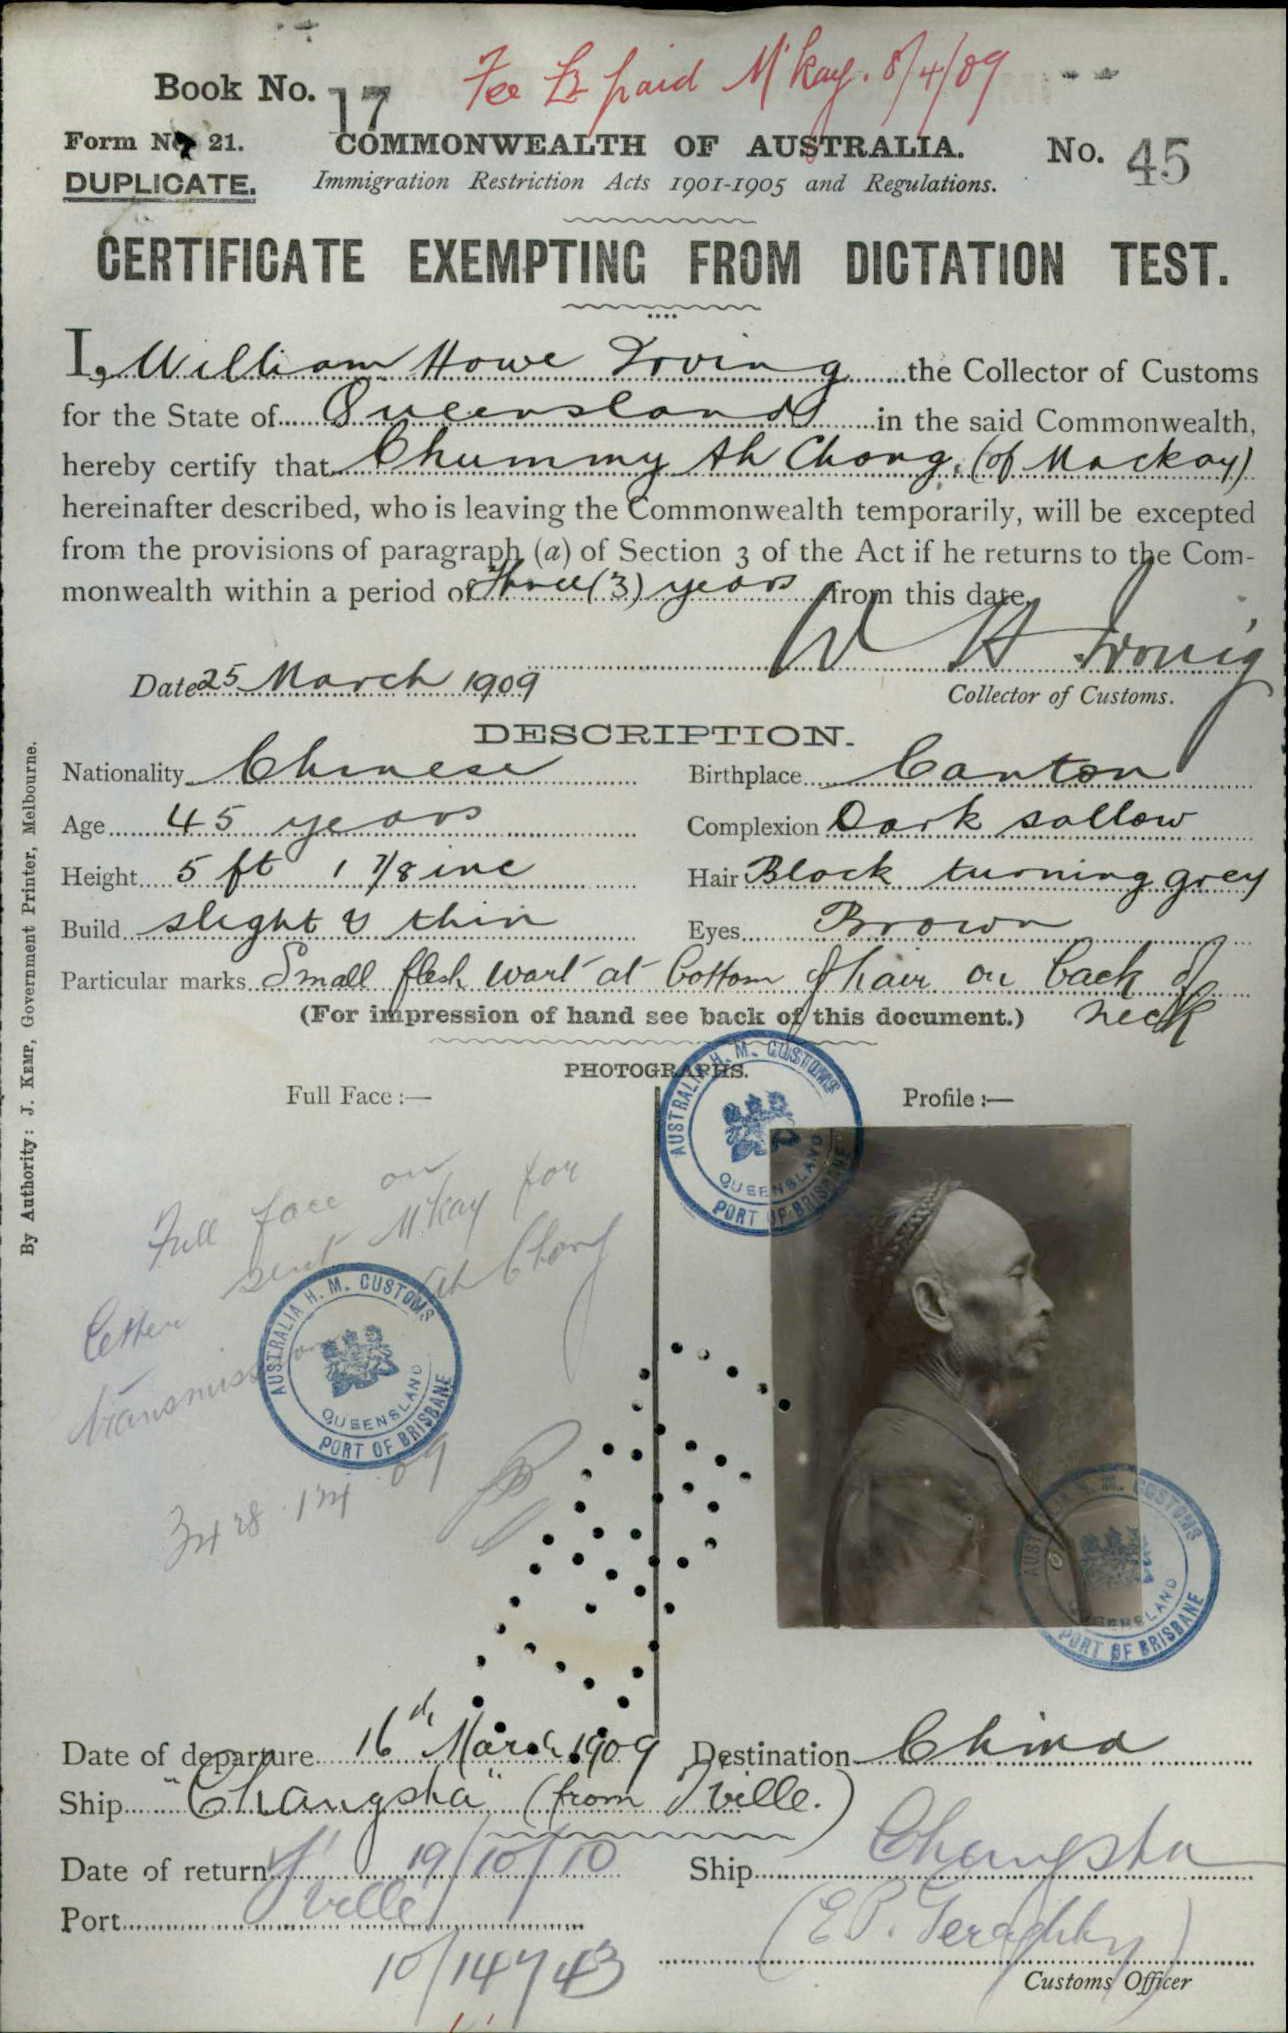 Fee £1 paid M'kay. 8/4/09
Book No. 17
Form No. 21.
COMMONWEALTH OF AUSTRALIA.
No. 45
DUPLICATE.
Immigration Restriction Acts 1901-1905 and Regulations.
CERTIFICATE EXEMPTING FROM DICTATION TEST.
I, William Howe Irving the Collector of Customs
for the State of Queensland in the said Commonwealth,
hereby certify that Chummy Ah Chong, (of Mackay)
hereinafter described, who is leaving the Commonwealth temporarily, will be excepted
from the provisions of paragraph (a) of Section 3 of the Act if he returns to the Com-
monwealth within a period of three (3) years from this date.
W H Irving
Date 25 March 1909
Collector of Customs.
DESCRIPTION.
Nationality Chinese
Birthplace Canton
Age 45 years
Complexion Dark sallow
Height 5 ft 1 7/8 inc
Hair Black turning grey
Build slight & thin
Eyes Brown
Particular marks Small flesh wart at bottom of hair on back of
neck
(For impression of hand see back of this document.)
PHOTOGRAPHS.
Full Face :—
Profile :—
AUSTRALIA H. M. CUSTOMS
QUEENSLAND
PORT OF BRISBANE
Full face on
letter sent M'Kay for
transmission Ah Chong
09
AUSTRALIA H. M. CUSTOMS
QUEENSLAND
PORT OF BRISBANE
AUSTRALIA H. M. CUSTOMS
QUEENSLAND
PORT OF BRISBANE
Date of departure 16th March 1909
Destination China
Ship "Changsha" (from T'ville.)
Date of return 19/10/10
Ship Changsha
Port T'ville
(E.P. Geraghty)
10/14743
Customs Officer
By Authority: J. KEMP, Government Printer, Melbourne.